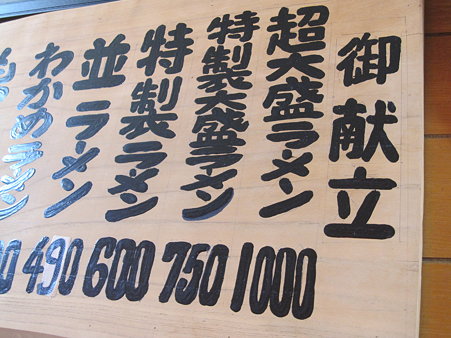 御献立
超大盛ラーメン 1000
特製大盛ラーメン 750
特製ラーメン 600
並ラーメン 490
わかめラーメン